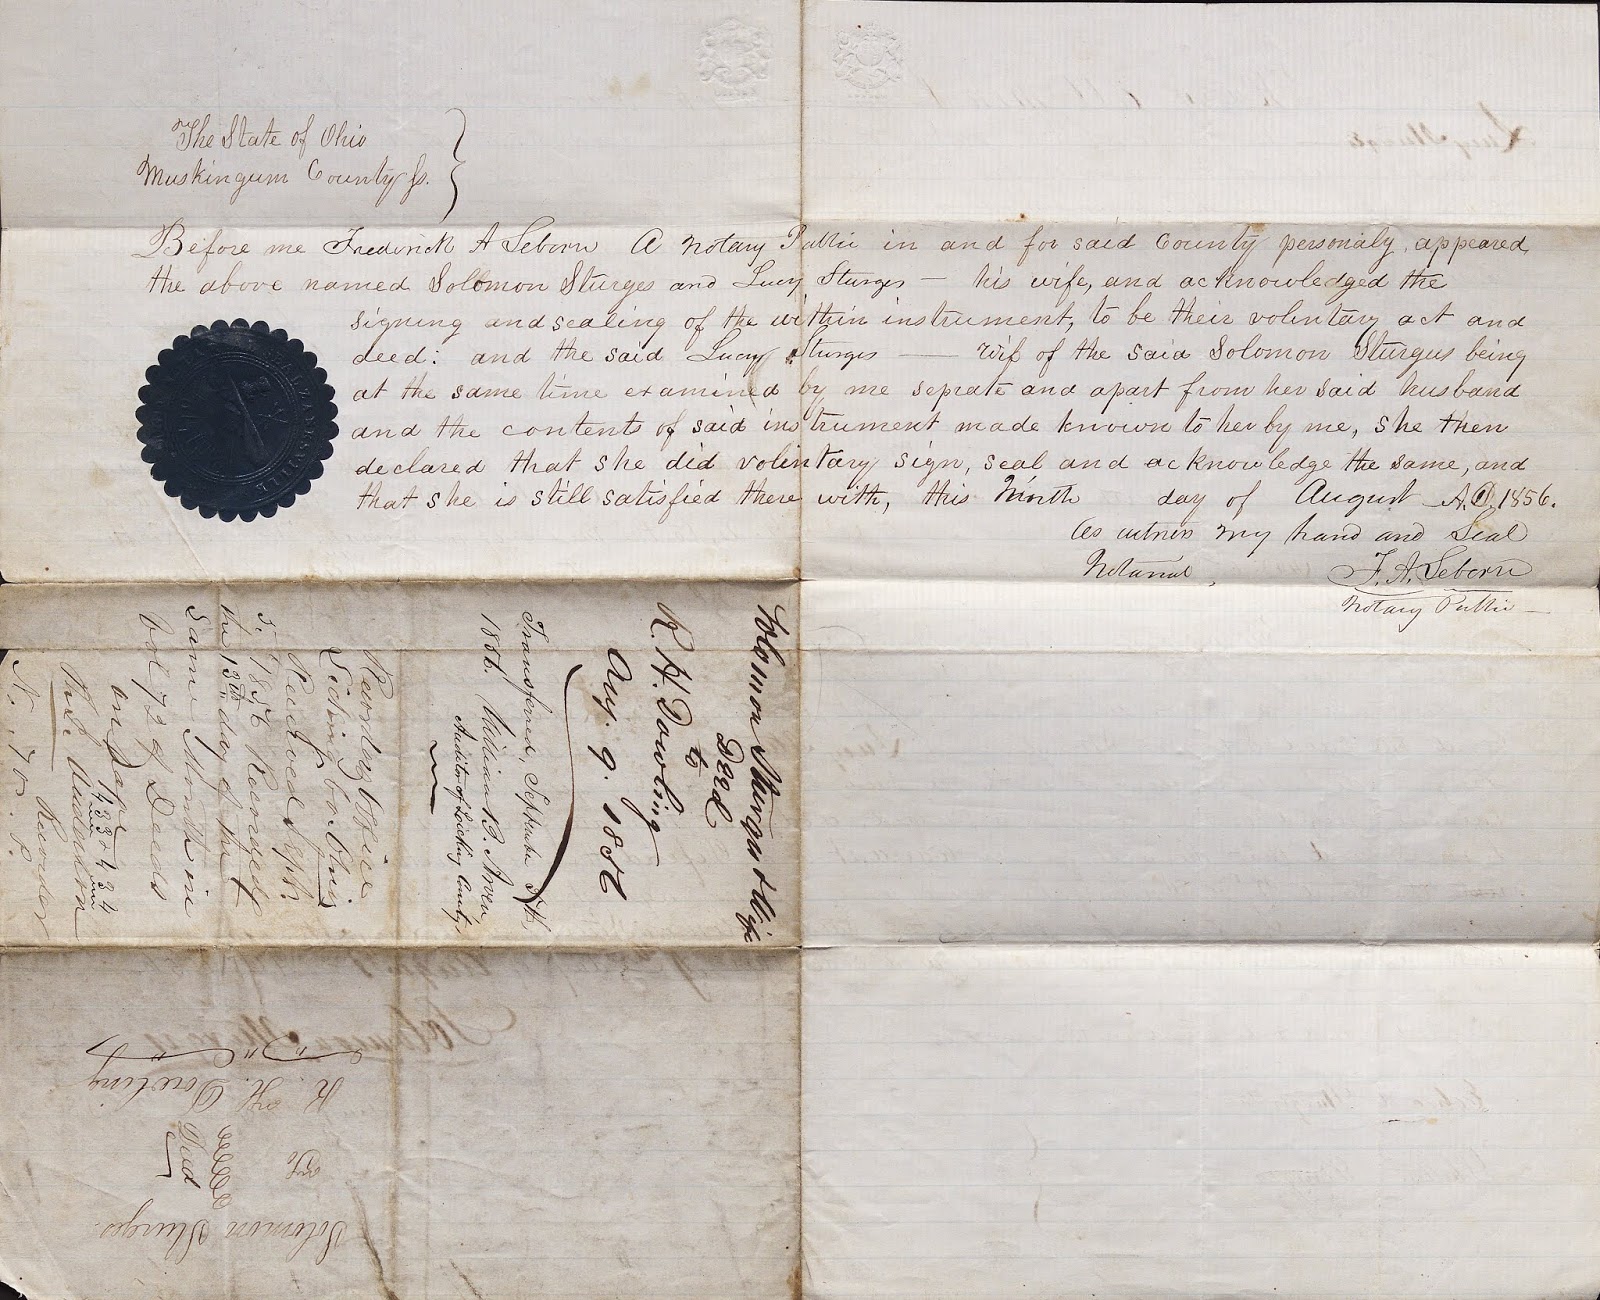 The State of Ohio
Muskingum County Ss.
Before me Frederick A Seborn A Notary Public in and for said County personaly, appeared
the above named Solomon Sturges and Lucy Sturges — his wife, and acknowledged the
signing and sealing of the within instrument, to be their voluntary act and
deed: and the said Lucy Sturges — wif of the said Solomon Sturgus being
at the same time examined by me seprate and apart from her said husband
and the contents of said instrument made known to her by me, she then
declared that she did voluntary sign, seal and acknowledge the same, and
that she is still satisfied there with, this Ninth day of August A.D. 1856.
As witness my hand and Seal
Notarial, F. A. Seborn
Notary Public —
Solomon Sturges & Wife
Deed
to
R. H. Dowling
Aug. 9. 1856
Transferred, September 5th,
1856. William B.
Auditor of Licking County
Recorders Office
Licking Co. Ohio
Received Sept.
5. 1856 Recorded
the 13th day of the
same Month in
Vol 72 of Deeds
on page 433 & 434
Recorder
Solomon Sturges.
To
Deed
R. H. Dowling
Lucy Sturges